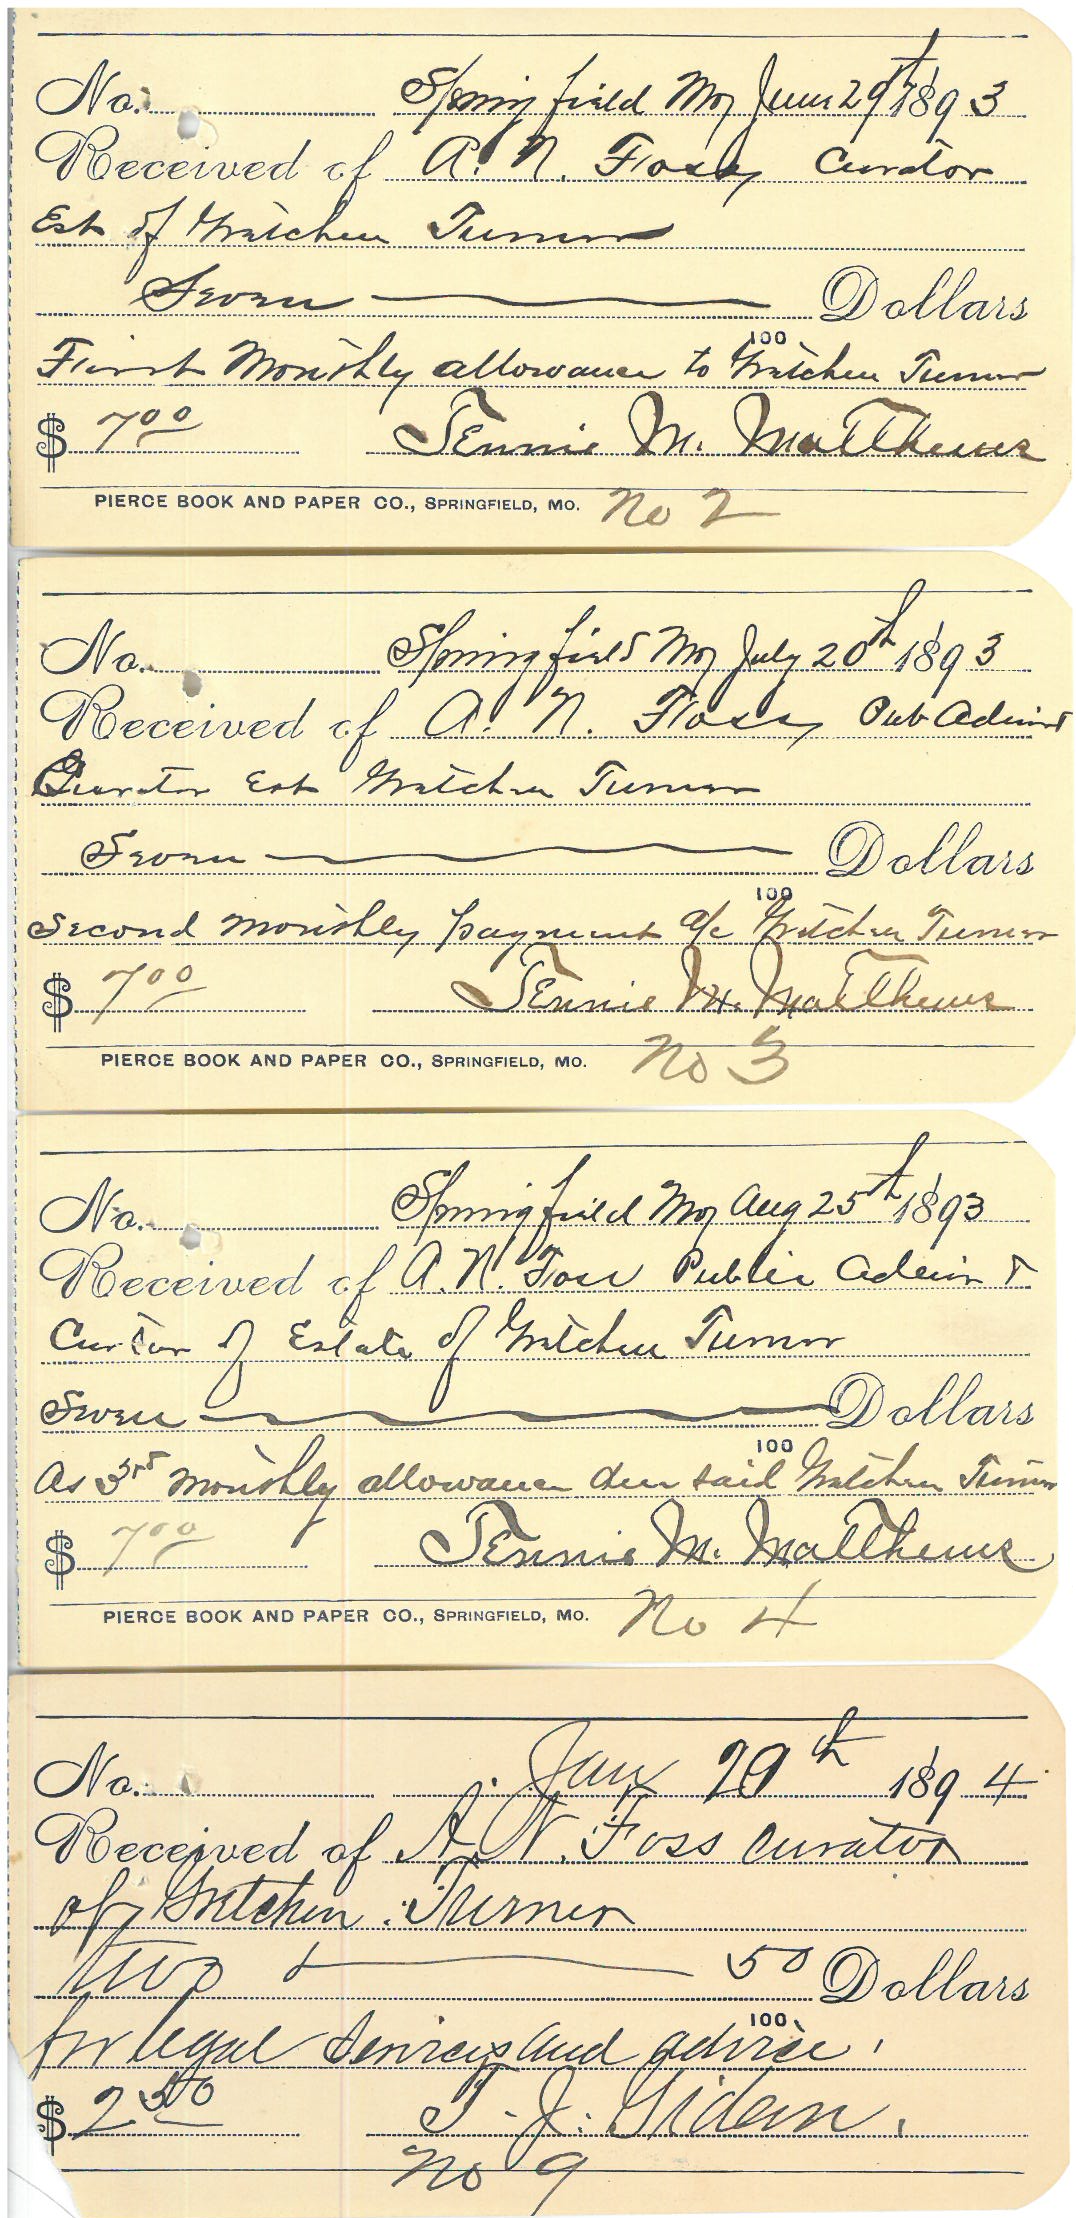 No. Springfield Mo June 29th 1893
Received of A. N. Foss Curator
Est of Gretchen Turner
Seven Dollars
100
First Monthly allowance to Gretchen Turner
$ 7 00 Jennie M. Matthews
PIERCE BOOK AND PAPER CO., SPRINGFIELD, MO. No 2
No. Springfield Mo July 20th 1893
Received of A. N. Foss Pub Admint
Curator Est Gretchen Turner
Seven Dollars
100
Second monthly payment a/c Gretchen Turner
$ 7 00 Jennie M. Matthews
PIERCE BOOK AND PAPER CO., SPRINGFIELD, MO. No 3
No. Springfield Mo Aug 25th 1893
Received of A. N. Foss Public Admin T
Curator of Estate of Gretchen Turner
Seven Dollars
100
As 3rd monthly allowance due said Gretchen Turner
$ 7 00 Jennie M. Matthews
PIERCE BOOK AND PAPER CO., SPRINGFIELD, MO. No 4
No. Jany 29th 1894
Received of A. N. Foss curator
of Gretchen Turner
Two & 50 Dollars
100
for legal services and advice.
$ 2 50 T. J. Gideon.
No 9